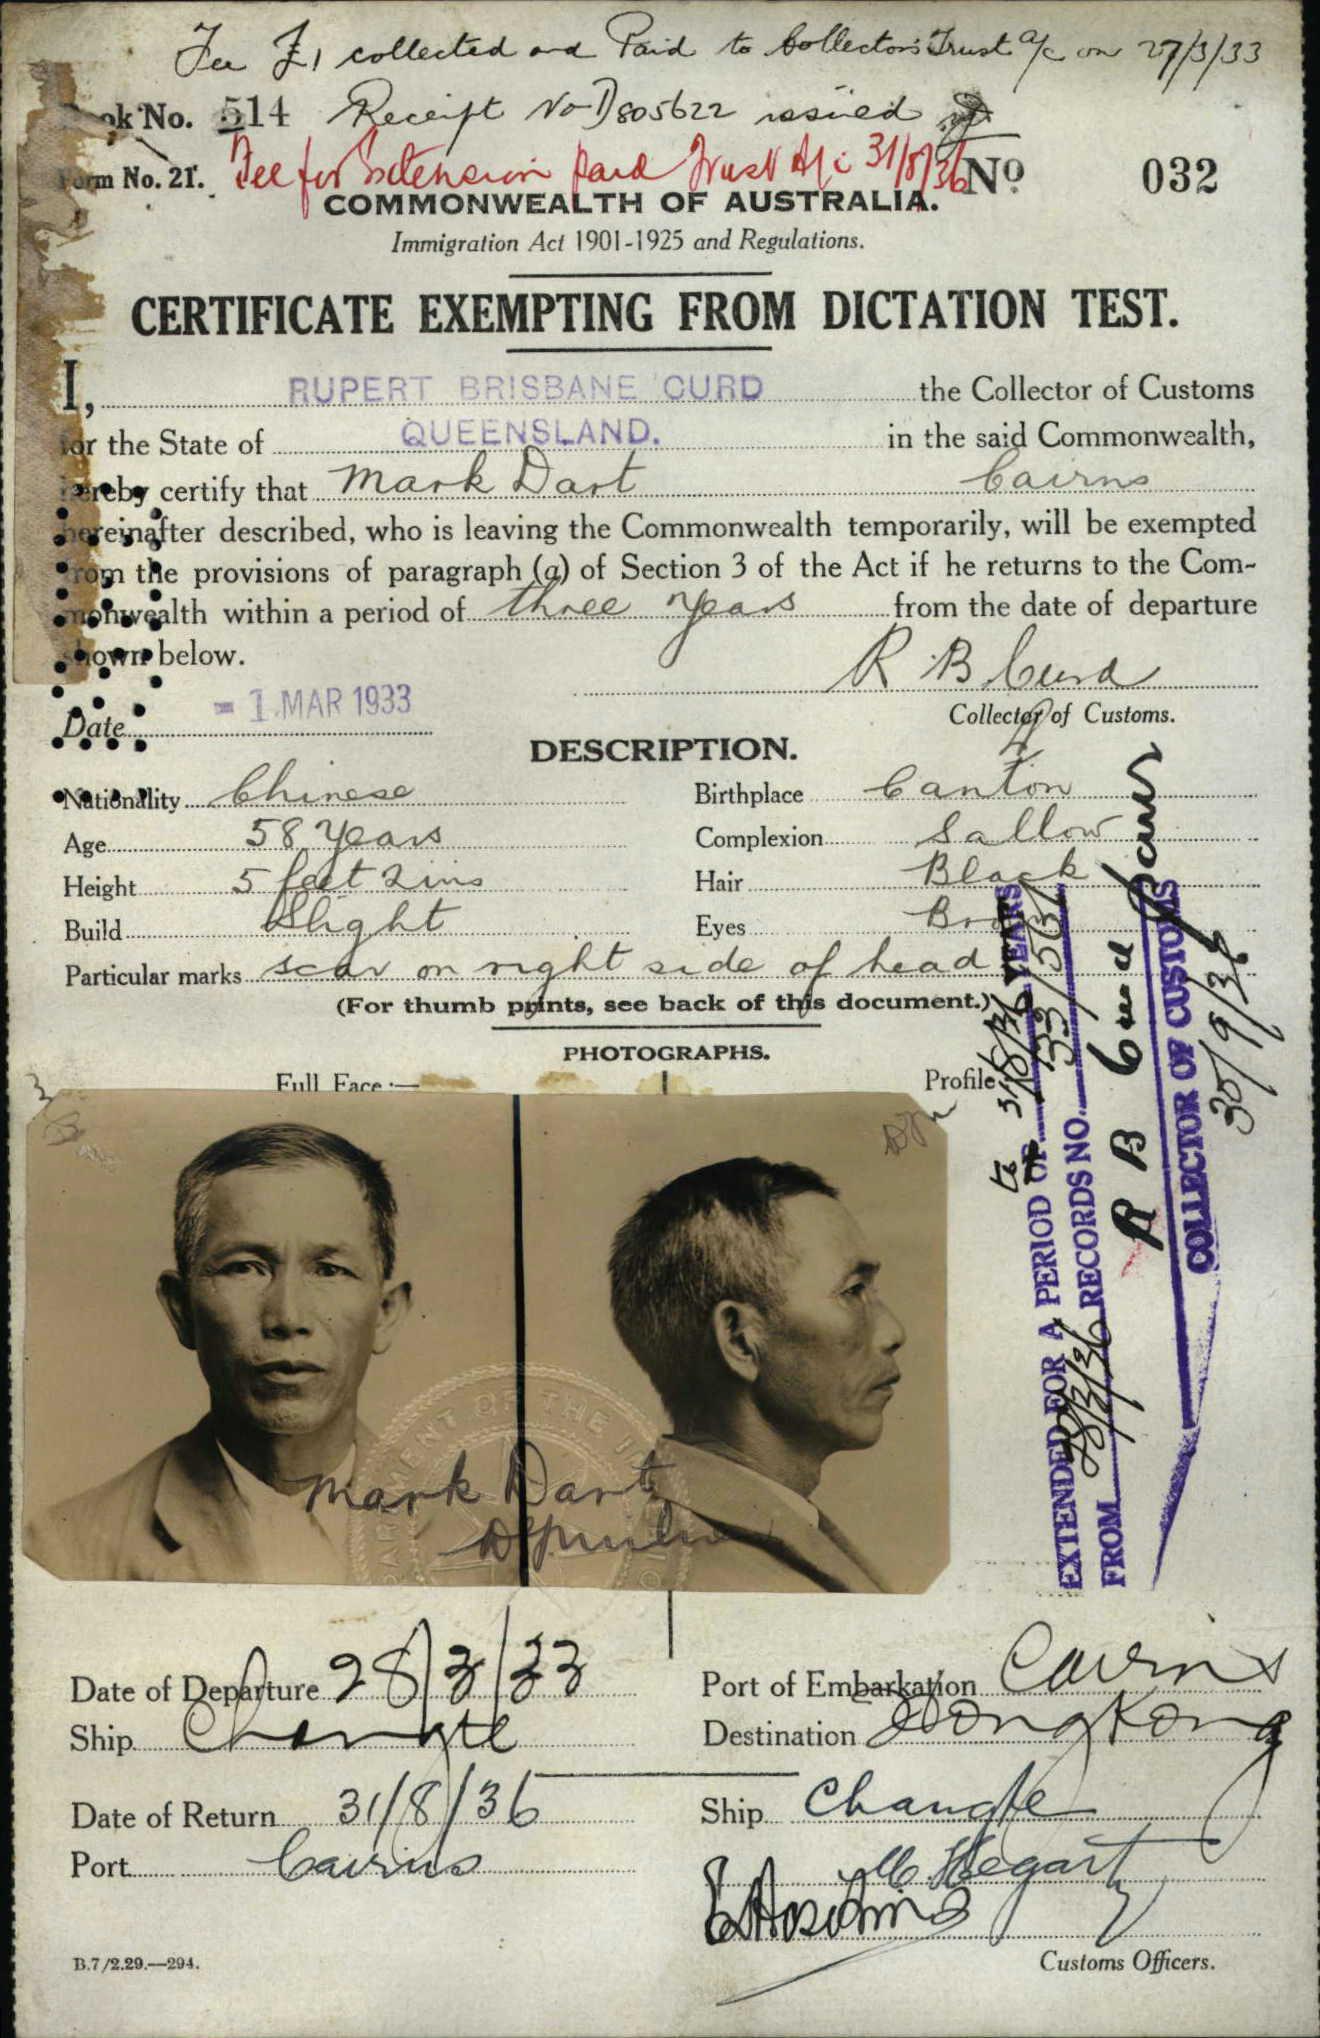 Fee £1 collected and Paid to Collectors Trust a/c on 27/3/33
ok No. 514 Receipt No D805622 issued
Form No. 21. Fee for Extension paid Trust A/c 31/8/36 No 032
COMMONWEALTH OF AUSTRALIA.
Immigration Act 1901-1925 and Regulations.
CERTIFICATE EXEMPTING FROM DICTATION TEST.
I, RUPERT BRISBANE CURD the Collector of Customs
for the State of QUEENSLAND. in the said Commonwealth,
hereby certify that Mark Dart Cairns
hereinafter described, who is leaving the Commonwealth temporarily, will be exempted
from the provisions of paragraph (a) of Section 3 of the Act if he returns to the Com-
monwealth within a period of three years from the date of departure
shown below.
R B Curd
Date - 1 MAR 1933 Collector of Customs.
DESCRIPTION.
Nationality Chinese Birthplace Canton
Age 58 years Complexion Sallow
Height 5 feet 2 ins Hair Black
Build Slight Eyes Brown
Particular marks scar on right side of head
(For thumb prints, see back of this document.)
PHOTOGRAPHS.
Full Face :— Profile
Mark Dart
EXTENDED FOR A PERIOD OF YEARS
to 31/8/36
FROM 28/3/36 RECORDS NO. 33/
R B Curd
COLLECTOR OF CUSTOMS
30/9/36
Date of Departure 28/3/33 Port of Embarkation Cairns
Ship Changte Destination Hong Kong
Date of Return 31/8/36 Ship Changte
Port Cairns Hegarty
Customs Officers.
B.7/2.29.—294.